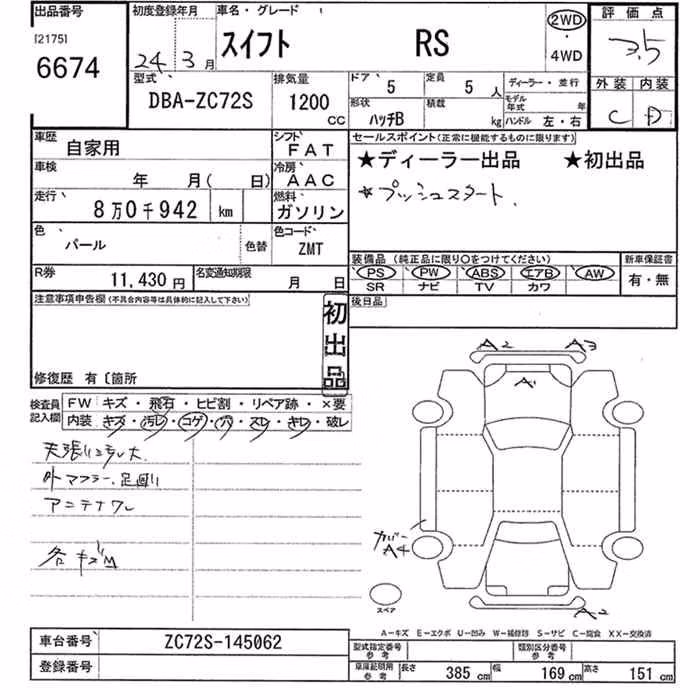 出品番号 初度登録年月 車名・グレード 2WD 評価点
[2175] 24年 3月 スイフト RS ・ 3.5
6674 4WD
型式 排気量 ドア 5 定員 5人 ディーラー・並行 外装 内装
DBA-ZC72S 1200CC 形状 ハッチB 積載 kg モデル年式 年 C D
ハンドル 左・右
車歴 自家用 シフト FAT セールスポイント(正常に機能するものに限ります)
車検 年 月( 日) 冷房 AAC ★ディーラー出品 ★初出品
走行 8万0千942 km 燃料 ガソリン ★プッシュスタート.
色 パール 色替 色コード ZMT
装備品(純正品に限り○をつけてください) 新車保証書
R券 11,430円 名変通知期限 月 日 PS PW ABS エアB AW 有・無
SR ナビ TV カワ
注意事項申告欄(不具合内容等は具体的に記入して下さい) 初出品 後日品
修復歴 有〔箇所
検査員記入欄 FW キズ・飛石・ヒビ割・リペア跡・×要
内装 キズ・汚レ・コゲ・穴・スレ・キレ・破レ
天張り
外マフラー、足廻り
アンテナ
各キズM
A2 A3
A1
カバー
A4
スペア
A2
A-キズ E-エクボ U-凹み W-補修跡 S-サビ C-腐食 XX-交換済
車台番号 ZC72S-145062 型式指定番号 参考 類別区分番号 参考
登録番号 車庫証明用 参考 長さ 385cm 幅 169cm 高さ 151cm